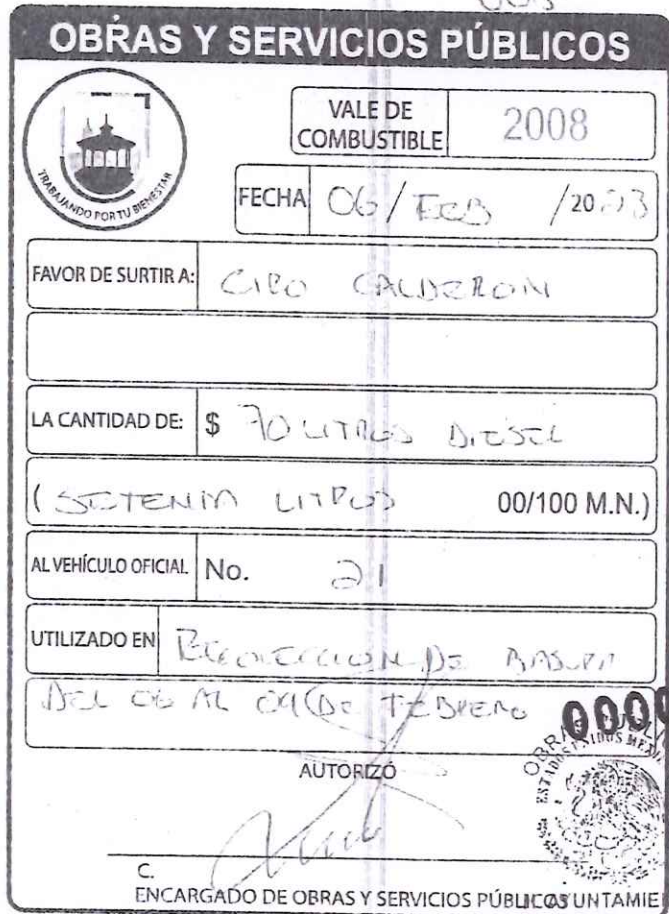 OBRAS Y SERVICIOS PÚBLICOS
TRABAJANDO POR TU BIENESTAR
VALE DE COMBUSTIBLE 2008
FECHA 06/FEB /2023
FAVOR DE SURTIR A: CIRO CALDERON
LA CANTIDAD DE: $ 70 LITROS DIESEL
(SETENTA LITROS 00/100 M.N.)
AL VEHÍCULO OFICIAL No. 21
UTILIZADO EN RECOLECCION DE BASURA
DEL 06 AL 09 DE FEBRERO
000
AUTORIZÓ
C.
ENCARGADO DE OBRAS Y SERVICIOS PÚBLICOS